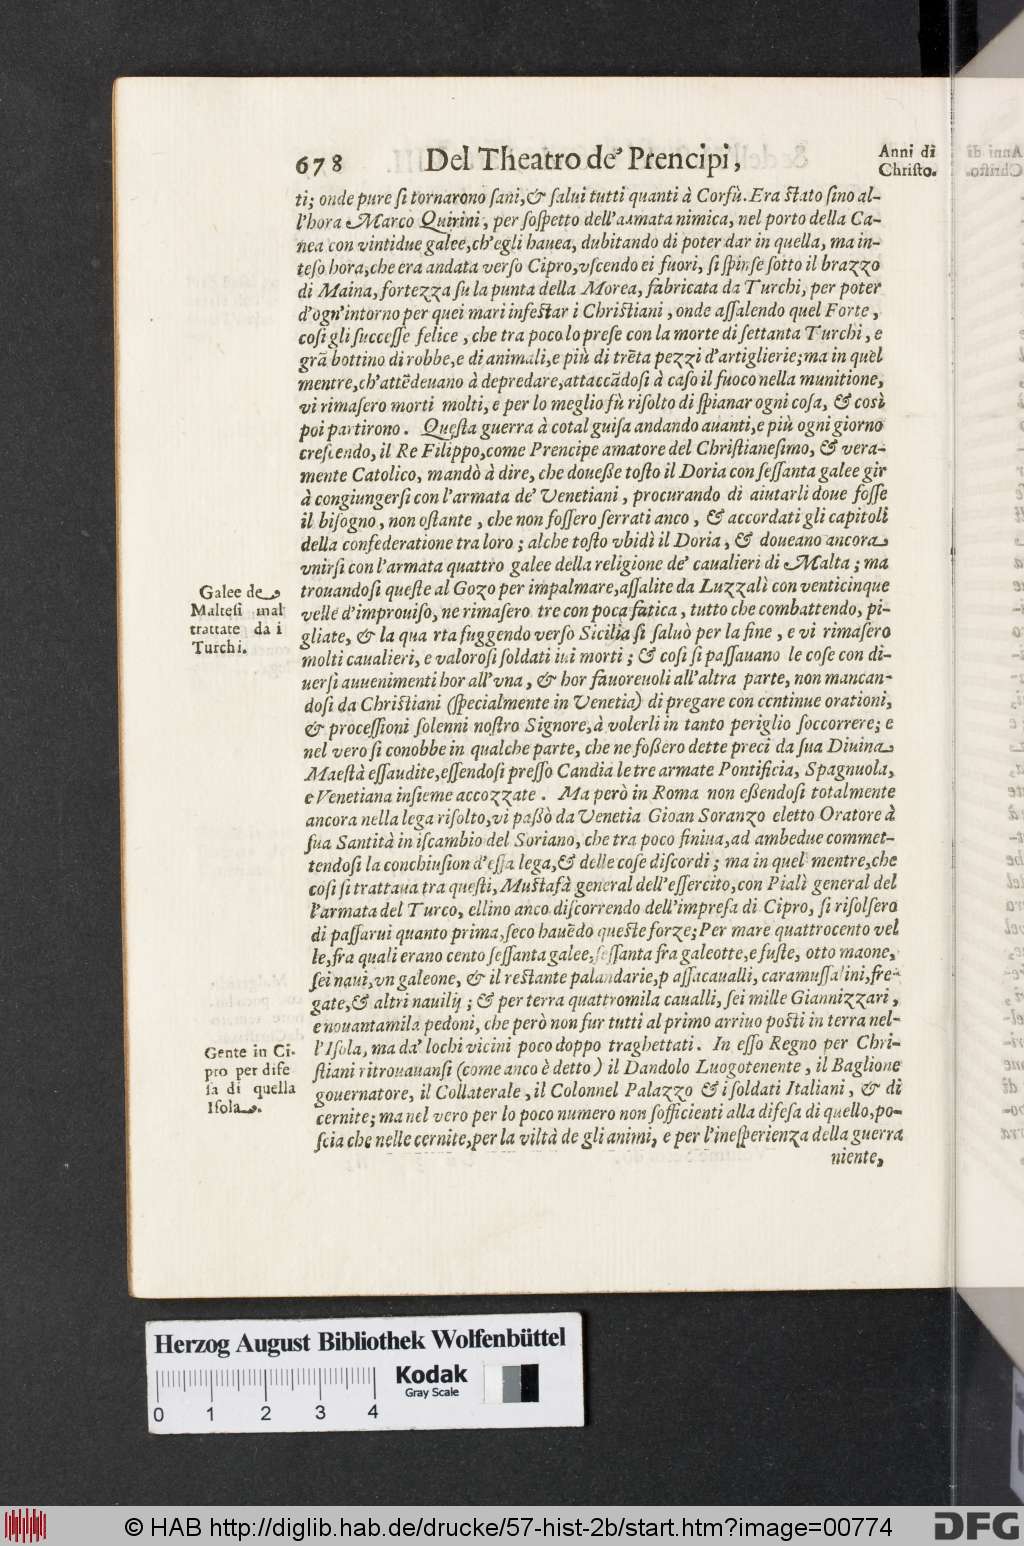 678 Del Theatro de' Prencipi, Anni di
Christo.
ti; onde pure ſi tornarono ſani,& ſalui tutti quanti à Corfù. Era ſtato ſino al-
l'hora Marco Quirini, per ſoſpetto dell'armata nimica, nel porto della Ca-
nea con vintidue galee,ch'egli hauea, dubitando di poter dar in quella, ma in-
teſo hora,che era andata verſo Cipro,vſcendo ei fuori, ſi ſpinſe ſotto il brazzo
di Maina, fortezza ſu la punta della Morea, fabricata da Turchi, per poter
d'ogn'intorno per quei mari infeſtar i Chriſtiani, onde aſſalendo quel Forte,
coſi gli ſucceſſe felice, che tra poco lo preſe con la morte di ſettanta Turchi, e
grã bottino di robbe,e di animali,e più di trẽta pezzi d'artiglierie;ma in quel
mentre,ch'attẽdeuano à depredare,attaccãdoſi à caſo il fuoco nella munitione,
vi rimaſero morti molti, e per lo meglio fù riſolto di ſpianar ogni coſa, & così
poi partirono. Queſta guerra à cotal guiſa andando auanti,e più ogni giorno
creſcendo, il Re Filippo,come Prencipe amatore del Chriſtianeſimo, & vera-
mente Catolico, mandò à dire, che doueſſe toſto il Doria con ſeſſanta galee gir
à congiungerſi con l'armata de' Venetiani, procurando di aiutarli doue foſſe
il biſogno, non oſtante, che non foſſero ſerrati anco, & accordati gli capitoli
della confederatione tra loro; alche toſto vbidì il Doria, & doueano ancora
vnirſi con l'armata quattro galee della religione de' caualieri di Malta; ma
Galee de
Malteſi mal
trattate da i
Turchi.
trouandoſi queſte al Gozo per impalmare,aſſalite da Luzzalì con venticinque
velle d'improuiſo, ne rimaſero tre con poca fatica, tutto che combattendo, pi-
gliate, & la qua rta fuggendo verſo Sicilia ſi ſaluò per la fine, e vi rimaſero
molti caualieri, e valoroſi ſoldati iui morti; & coſi ſi paſſauano le coſe con di-
uerſi auuenimenti hor all'vna, & hor fauoreuoli all'altra parte, non mancan-
doſi da Chriſtiani (ſpecialmente in Venetia) di pregare con continue orationi,
& proceſſioni ſolenni noſtro Signore,à volerli in tanto periglio ſoccorrere; e
nel vero ſi conobbe in qualche parte, che ne foſſero dette preci da ſua Diuina
Maeſtà eſſaudite,eſſendoſi preſſo Candia le tre armate Pontificia, Spagnuola,
e Venetiana inſieme accozzate. Ma però in Roma non eſſendoſi totalmente
ancora nella lega riſolto,vi paſſò da Venetia Gioan Soranzo eletto Oratore à
ſua Santità in iſcambio del Soriano, che tra poco finiua,ad ambedue commet-
tendoſi la conchiuſion d'eſſa lega,& delle coſe diſcordi; ma in quel mentre,che
coſi ſi trattaua tra queſti, Muſtafà general dell'eſſercito,con Pialì general del
l'armata del Turco, ellino anco diſcorrendo dell'impreſa di Cipro, ſi riſolſero
di paſſarui quanto prima,ſeco hauẽdo queſte forze;Per mare quattrocento vel
le,fra quali erano cento ſeſſanta galee,ſeſſanta fra galeotte,e fuſte, otto maone,
ſei naui,vn galeone, & il reſtante palandarie,p aſſacaualli, caramuſſalini,fre-
gate,& altri nauilij; & per terra quattromila caualli, ſei mille Giannizzari,
e nouantamila pedoni, che però non fur tutti al primo arriuo poſti in terra nel-
Gente in Ci-
pro per dife
ſa di quella
Iſola.
l'Iſola, ma da' lochi vicini poco doppo traghettati. In eſſo Regno per Chri-
ſtiani ritrouauanſi (come anco è detto) il Dandolo Luogotenente, il Baglione
gouernatore, il Collaterale, il Colonnel Palazzo & i ſoldati Italiani, & di
cernite; ma nel vero per lo poco numero non ſofficienti alla difeſa di quello,po-
ſcia che nelle cernite,per la viltà de gli animi, e per l'ineſperienza della guerra
niente,
Herzog August Bibliothek Wolfenbüttel
Kodak
Gray Scale
0 1 2 3 4
© HAB http://diglib.hab.de/drucke/57-hist-2b/start.htm?image=00774
DFG